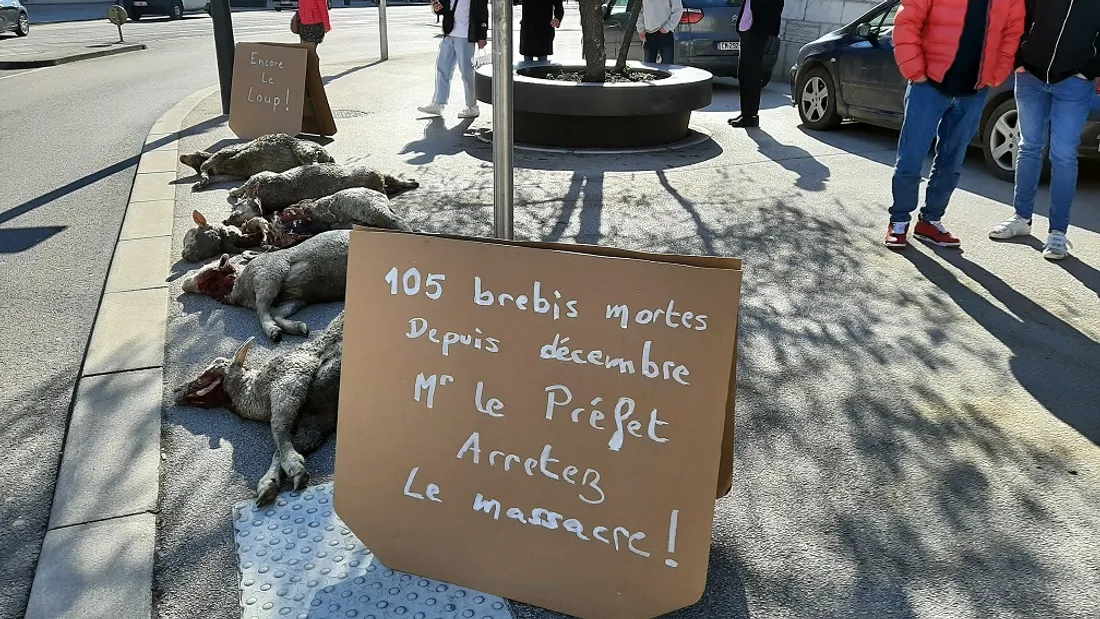 Encore
Le
Loup !
105 brebis mortes
Depuis décembre
Mr le Préfet
Arretez
Le massacre !